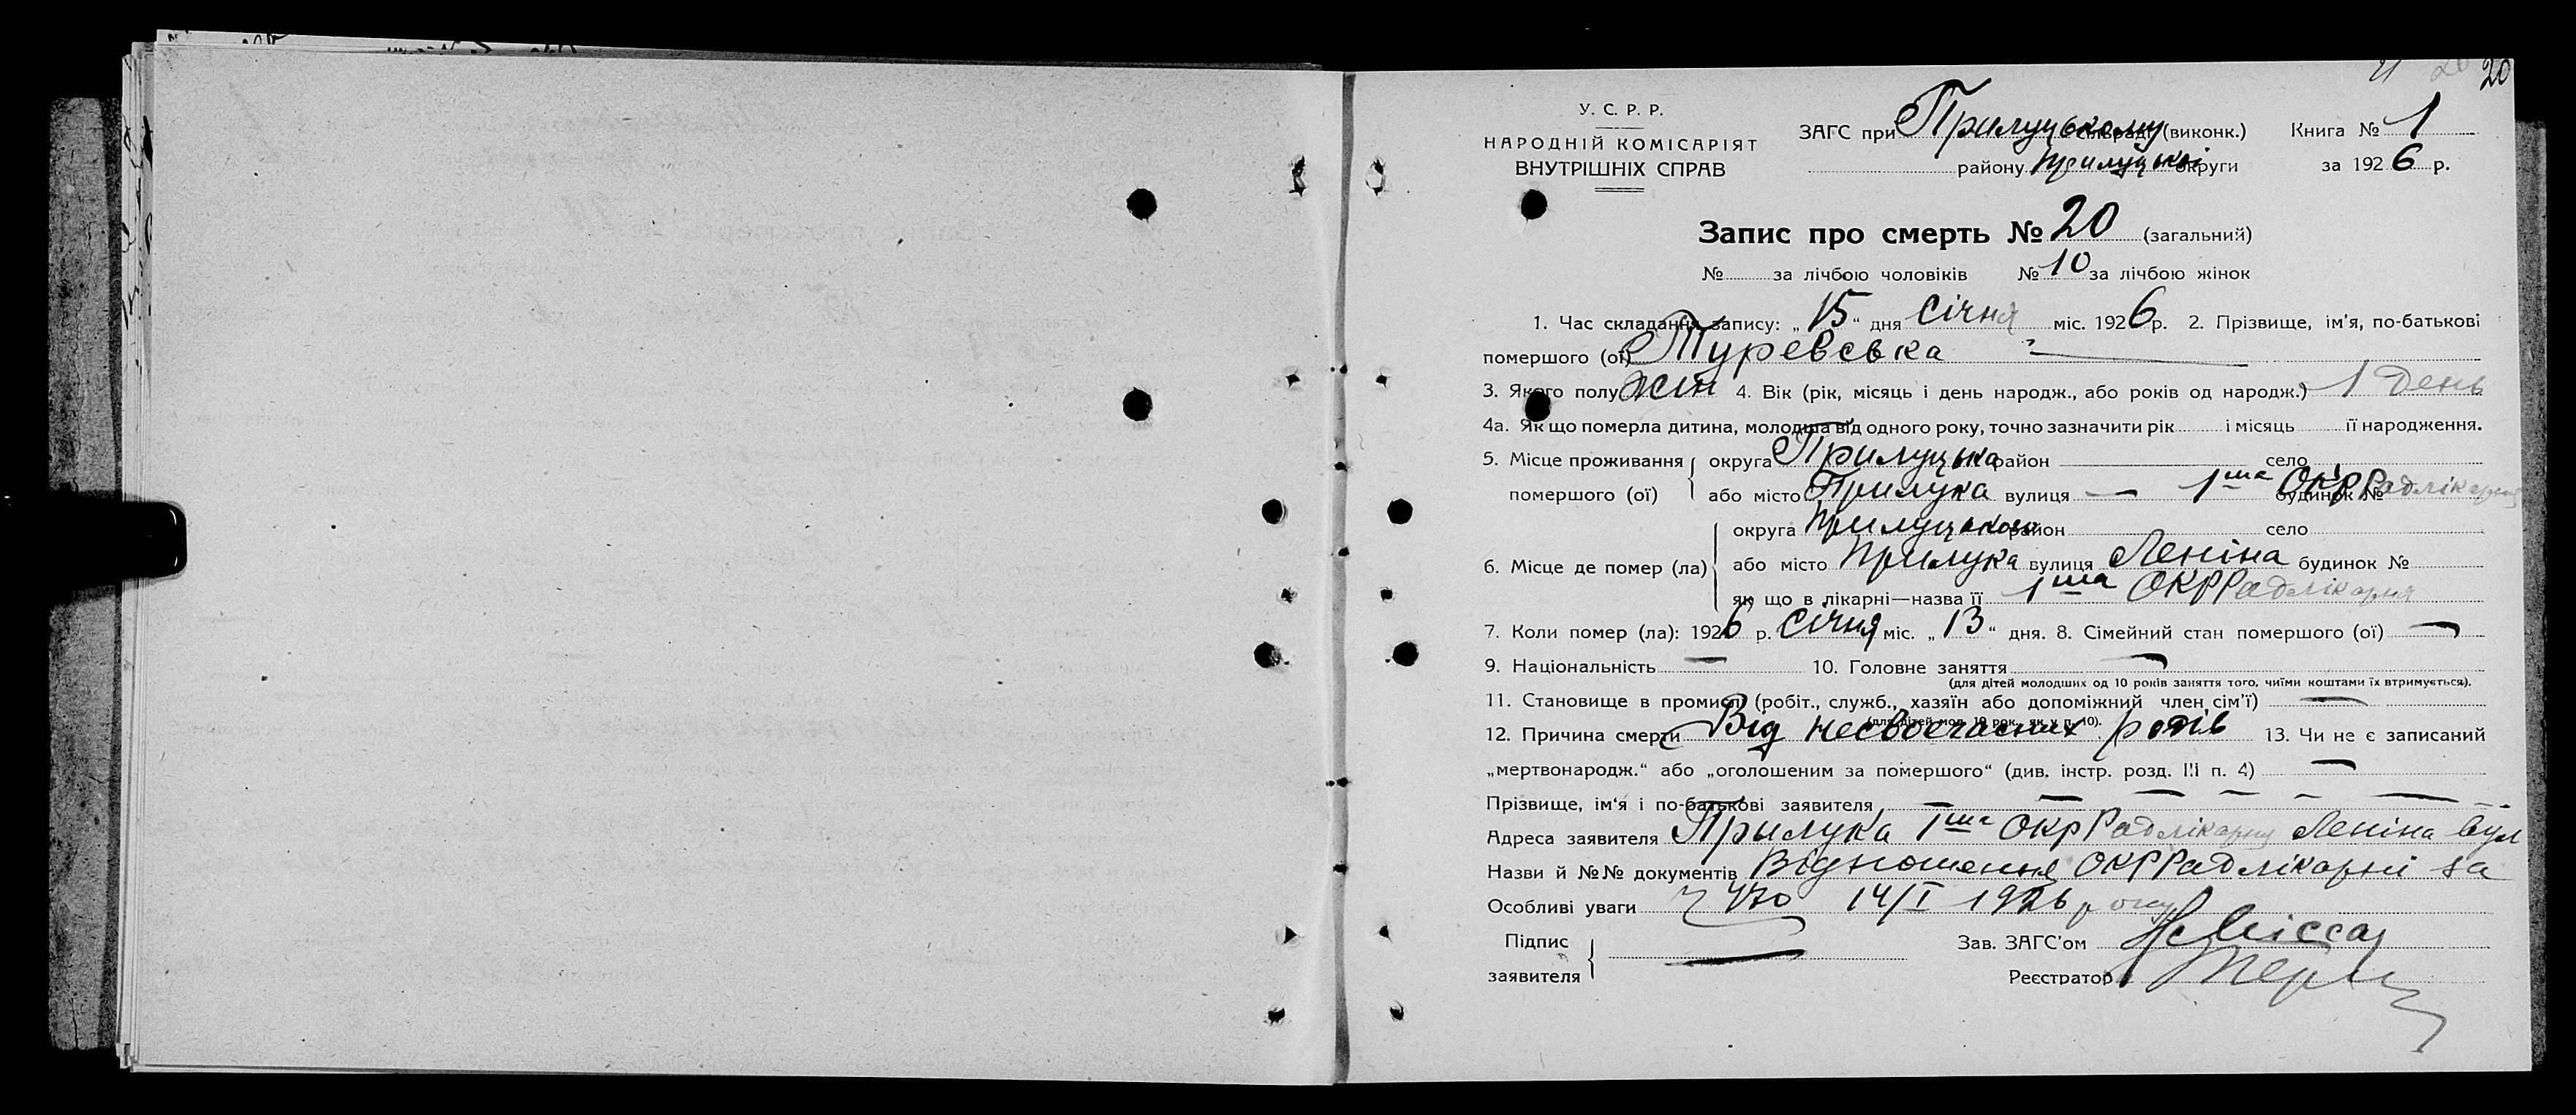 20
У. С. Р. Р.
НАРОДНІЙ КОМІСАРІЯТ
ВНУТРІШНІХ СПРАВ
ЗАГС при Прилуцькому сільраді (виконк.) Книга № 1
району Прилуцької округи за 1926 р.
Запис про смерть № 20 (загальний)
№ за лічбою чоловіків № 10 за лічбою жінок
1. Час складання запису: „15“ дня Січня міс. 1926 р. 2. Прізвище, ім'я, по-батькові
помершого (ої) Туревська ?
3. Якого полу жін 4. Вік (рік, місяць і день народж., або років од народж.) 1 день
4а. Як що померла дитина, молодша від одного року, точно зазначити рік і місяць її народження.
5. Місце проживання округа Прилуцька район село
помершого (ої) або місто Прилука вулиця — 1ша ОКРРадлікарня будинок №
округа Прилуцького район село
6. Місце де помер (ла) або місто Прилука вулиця Леніна будинок №
як що в лікарні—назва її 1ша ОКРРадлікарня
7. Коли помер (ла): 1926 р. Січня міс. „13“ дня. 8. Сімейний стан помершого (ої) —
9. Національність — 10. Головне заняття —
(для дітей молодших од 10 років заняття того, чиїми коштами їх втримується).
11. Становище в промислі (робіт., служб., хазяїн або допоміжний член сім'ї) —
(для дітей мол. 10 рок. як у п. 10).
12. Причина смерти Від несвоєчасних родів 13. Чи не є записаний
„мертвонародж.“ або „оголошеним за помершого“ (див. інстр. розд. III п. 4) —
Прізвище, ім'я і по-батькові заявителя — — — — — —
Адреса заявителя Прилука 1ша ОКРРадлікарня Леніна вул
Назви й №№ документів Відношення ОКРРадлікарні за
Особливі уваги ч 470 14/I 1926 року
Підпис
заявителя —
Зав. ЗАГС'ом
Реєстратор